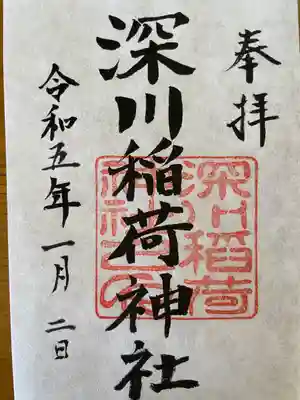 奉拝
深川稲荷神社
深川稲荷
神社之印
令和五年一月二日